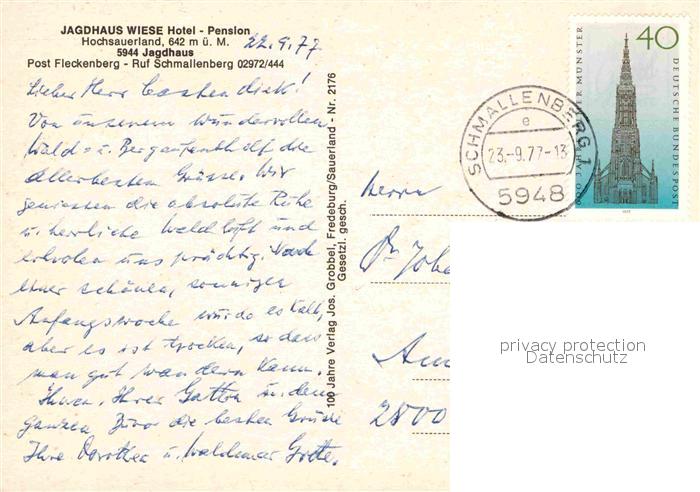 JAGDHAUS WIESE Hotel - Pension
Hochsauerland, 642 m ü. M.
5944 Jagdhaus
Post Fleckenberg - Ruf Schmallenberg 02972/444
22.9.77
Lieber Herr
Von unserem wundervollen
Wald= u. Bergaufenthalt die
allerbesten Grüsse. Wir
geniessen die absolute Ruhe
u. herrliche Waldluft und
erholen uns prächtig. Nach
einer schönen, sonnigen
Anfangswoche wurde es kalt,
aber es ist trocken, so dass
man gut wandern kann.
Ihnen, Ihrer Gattin u. dem
ganzen die besten Grüsse
Ihre Dorothea u. Waldemar Grotte.
100 Jahre Verlag Jos. Grobbel, Fredeburg/Sauerland - Nr. 2176
Gesetzl. gesch.
Herrn
Dr. Joh
Am
2800
SCHMALLENBERG 1
e
23.-9.77-13
5948
40
600 JAHRE ULMER MÜNSTER
DEUTSCHE BUNDESPOST
1977
privacy protection
Datenschutz